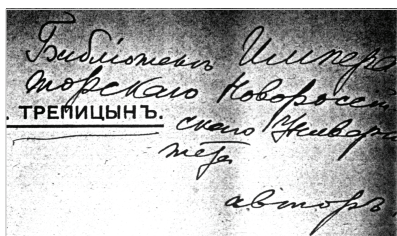 Библіотекѣ Импера
торскаго Новороссій
. ТРЕПИЦЫНЪ.
скаго Универси
тета
авторъ.